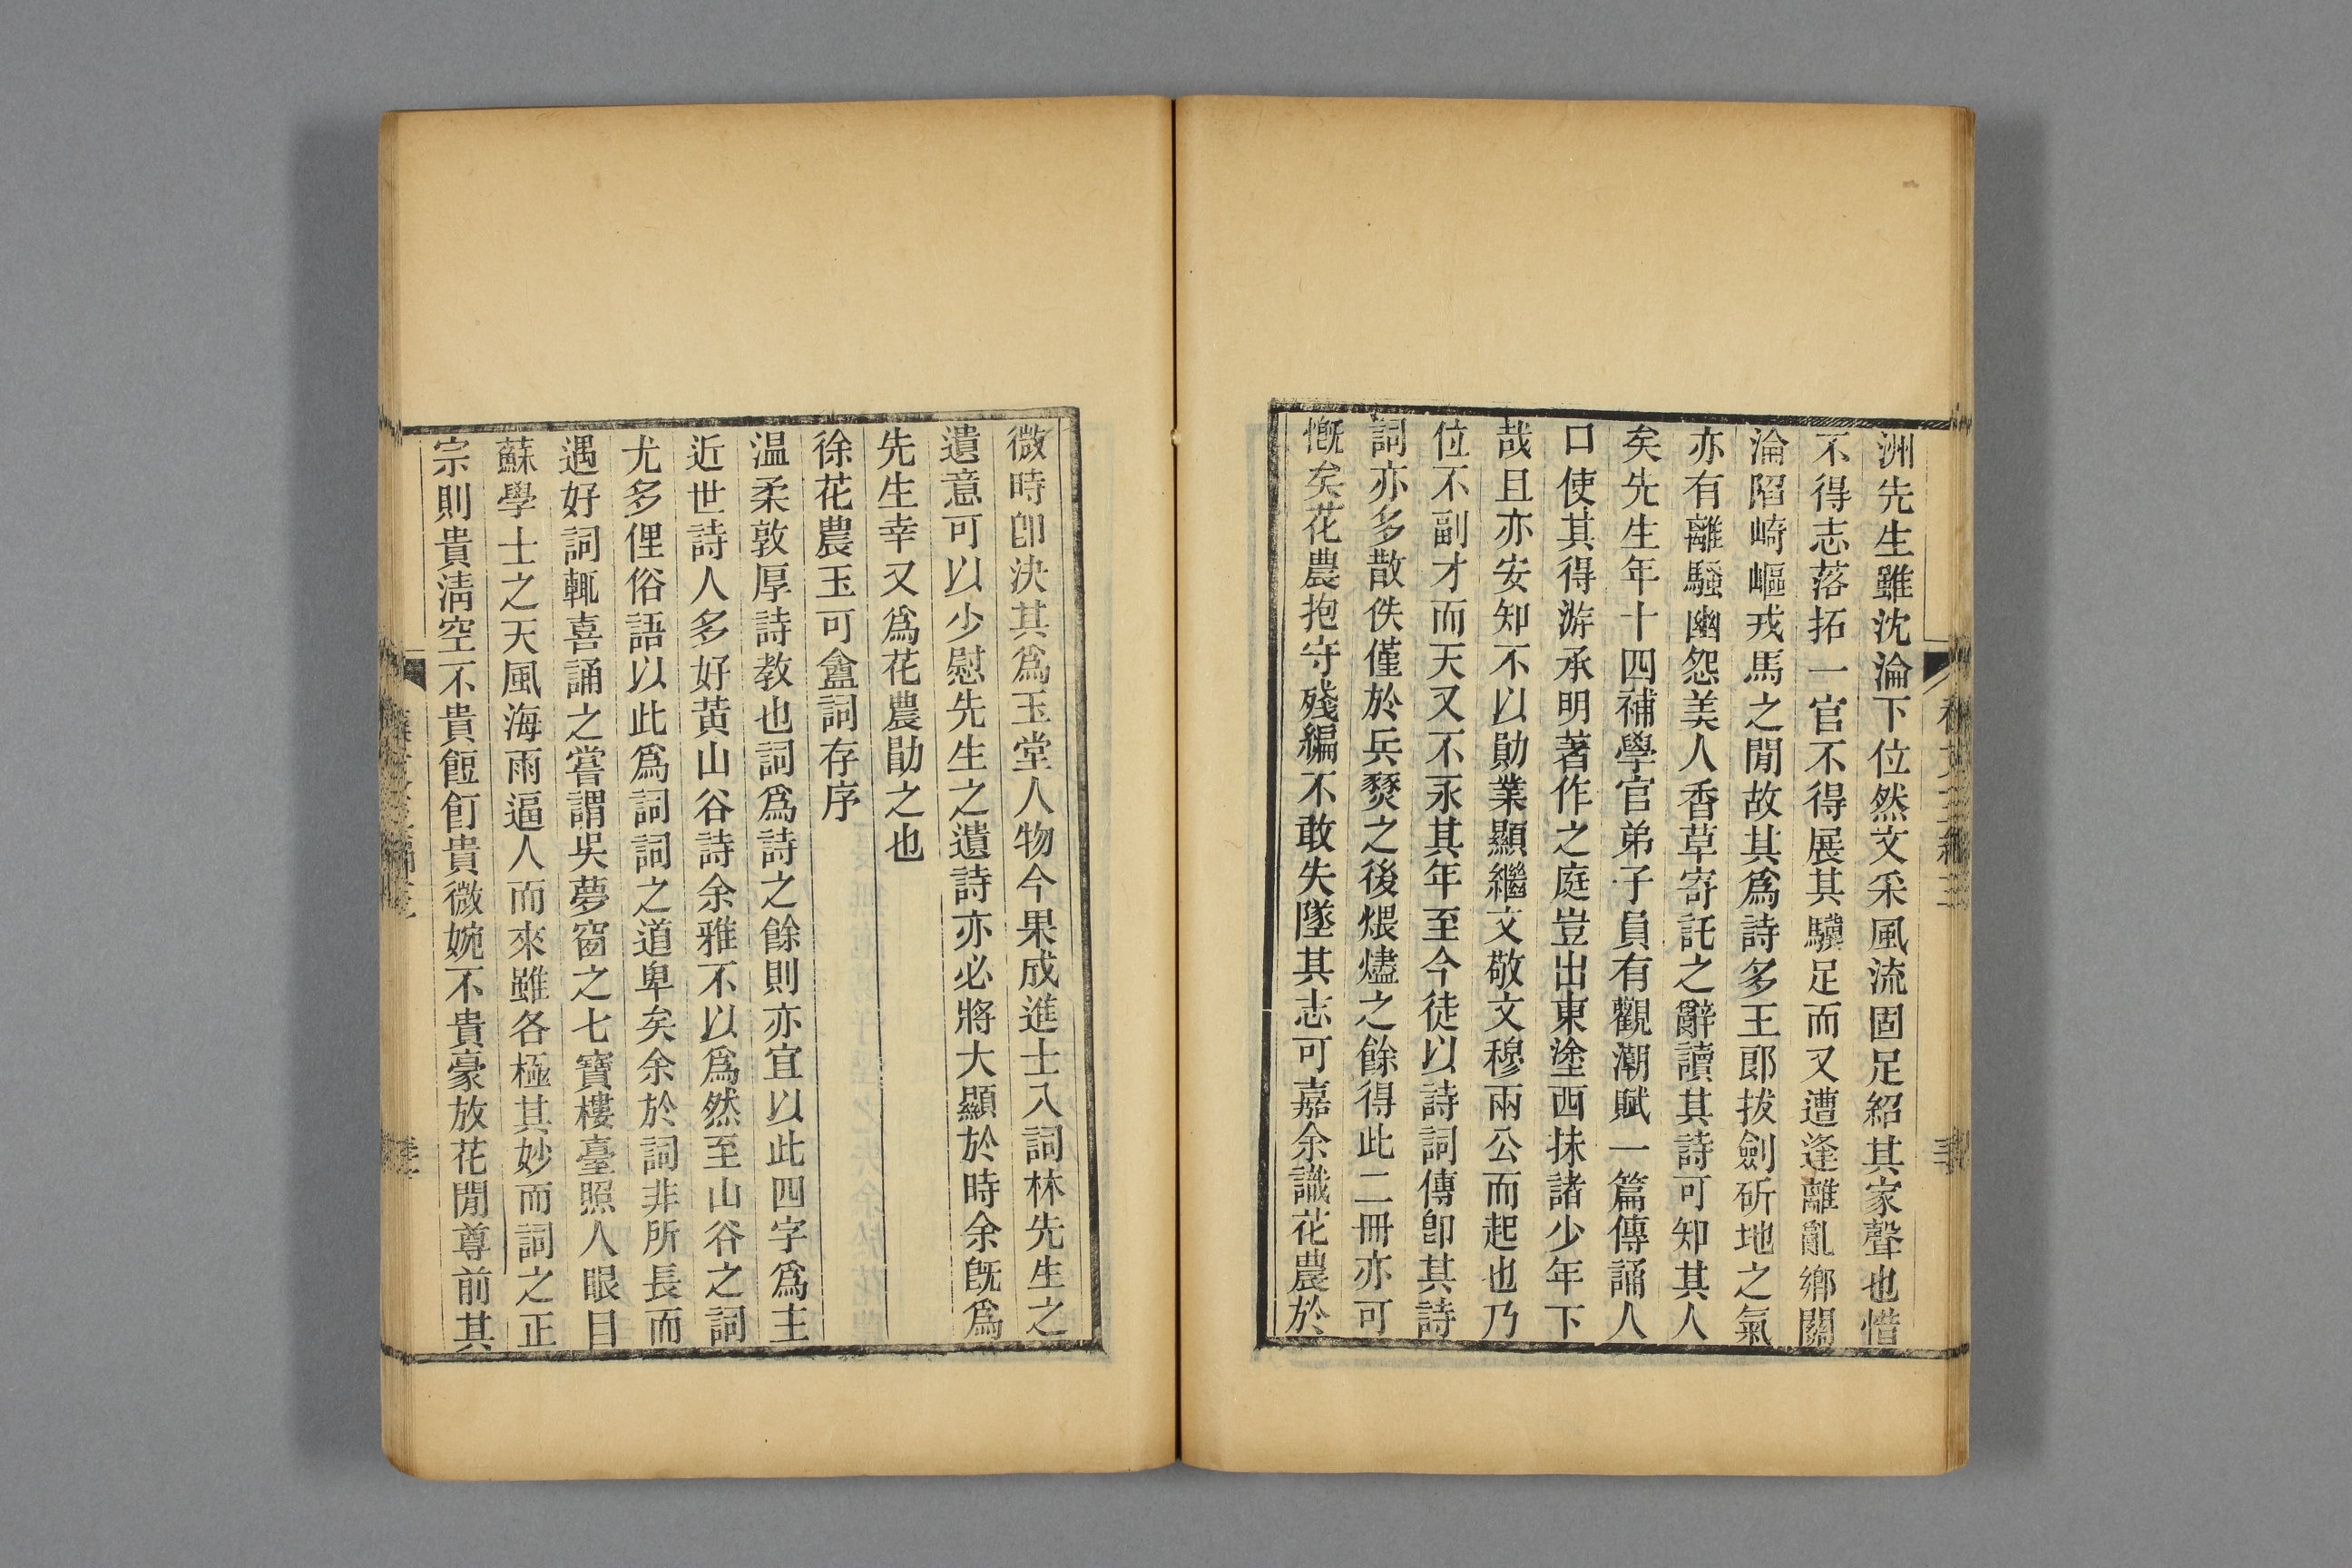 洲先生雖沈淪下位然文采風流固足紹其家聲也惜
不得志落拓一官不得展其驥足而又遭逢離亂鄉關
淪陷崎嶇戎馬之閒故其爲詩多王郎拔劍斫地之氣
亦有離騷幽怨美人香草寄託之辭讀其詩可知其人
矣先生年十四補學官弟子員有觀潮賦一篇傳誦人
口使其得游承明著作之庭豈出東塗西抹諸少年下
哉且亦安知不以勛業顯繼文敬文穆兩公而起也乃
位不副才而天又不永其年至今徒以詩詞傳卽其詩
詞亦多散佚僅於兵燹之後煨燼之餘得此二冊亦可
慨矣花農抱守殘編不敢失墜其志可嘉余識花農於
微時卽決其爲玉堂人物今果成進士入詞林先生之
遺意可以少慰先生之遺詩亦必將大顯於時余旣爲
先生幸又爲花農勖之也
徐花農玉可盦詞存序
温柔敦厚詩教也詞爲詩之餘則亦宜以此四字爲主
近世詩人多好黃山谷詩余雅不以爲然至山谷之詞
尤多俚俗語以此爲詞詞之道卑矣余於詞非所長而
遇好詞輒喜誦之嘗謂吳夢窗之七寶樓臺照人眼目
蘇學士之天風海雨逼人而來雖各極其妙而詞之正
宗則貴淸空不貴餖飣貴微婉不貴豪放花閒尊前其